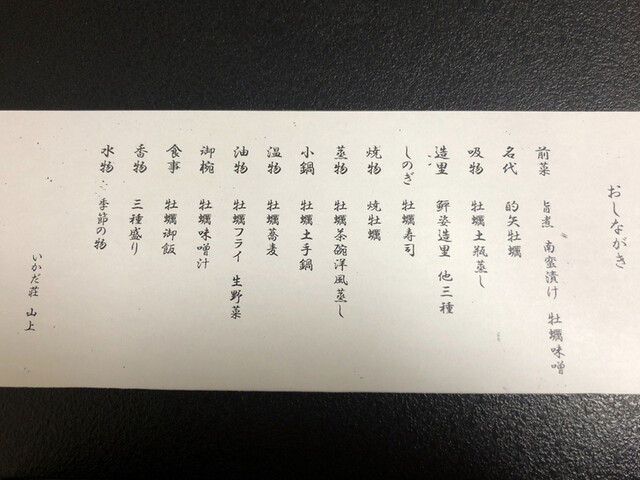 おしながき
前菜 旨煮 南蛮漬け 牡蠣味噌
名代 的矢牡蠣
吸物 牡蠣土瓶蒸し
造里 鮃姿造里 他三種
しのぎ 牡蠣寿司
焼物 焼牡蠣
蒸物 牡蠣茶碗洋風蒸し
小鍋 牡蠣土手鍋
温物 牡蠣蕎麦
油物 牡蠣フライ 生野菜
御椀 牡蠣味噌汁
食事 牡蠣御飯
香物 三種盛り
水物 季節の物
いかだ荘 山上